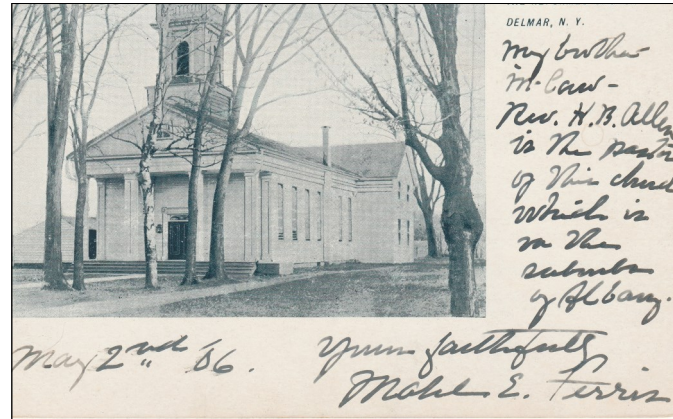 DELMAR, N. Y.
My brother
in-law-
Rev. H. B. Allen
is the pastor
of this church
which is
in the
suburbs
of Albany.
May 2nd '06.
Yours faithfully
Mabel E. Ferris